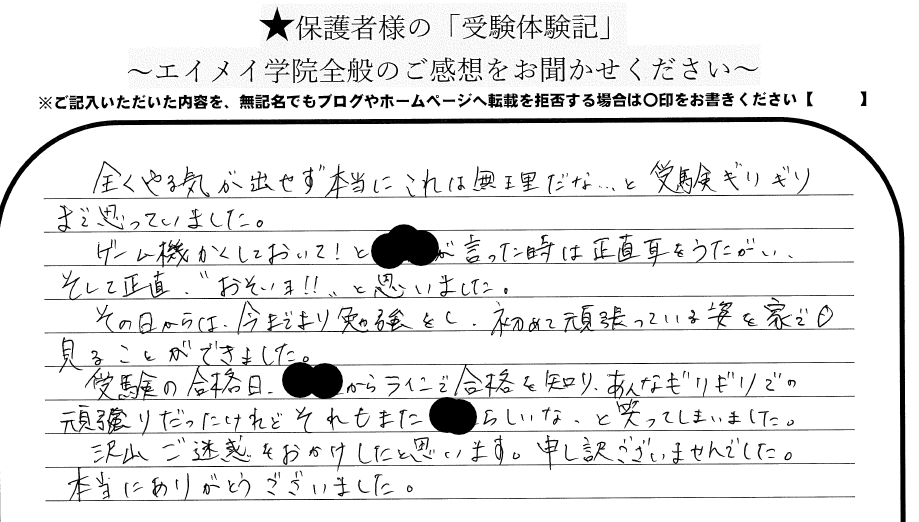 ★保護者様の「受験体験記」
～エイメイ学院全般のご感想をお聞かせください～
※ご記入いただいた内容を、無記名でもブログやホームページへ転載を拒否する場合は〇印をお書きください【　　】
全くやる気が出せず本当にこれは無理だな...と受験ギリギリ
まで思っていました。
ゲーム機かくしておいて!と が言った時は正直耳をうたがい、
そして正直、"おそいヨ!!"と思いました。
その日からは、今までより勉強をし、初めて頑張っている姿を家で
見ることができました。
受験の合格日、 からラインで合格を知り、あんなギリギリでの
頑張りだったけれどそれもまた らしいな、と笑ってしまいました。
沢山ご迷惑をおかけしたと思います。申し訳ございませんでした。
本当にありがとうございました。